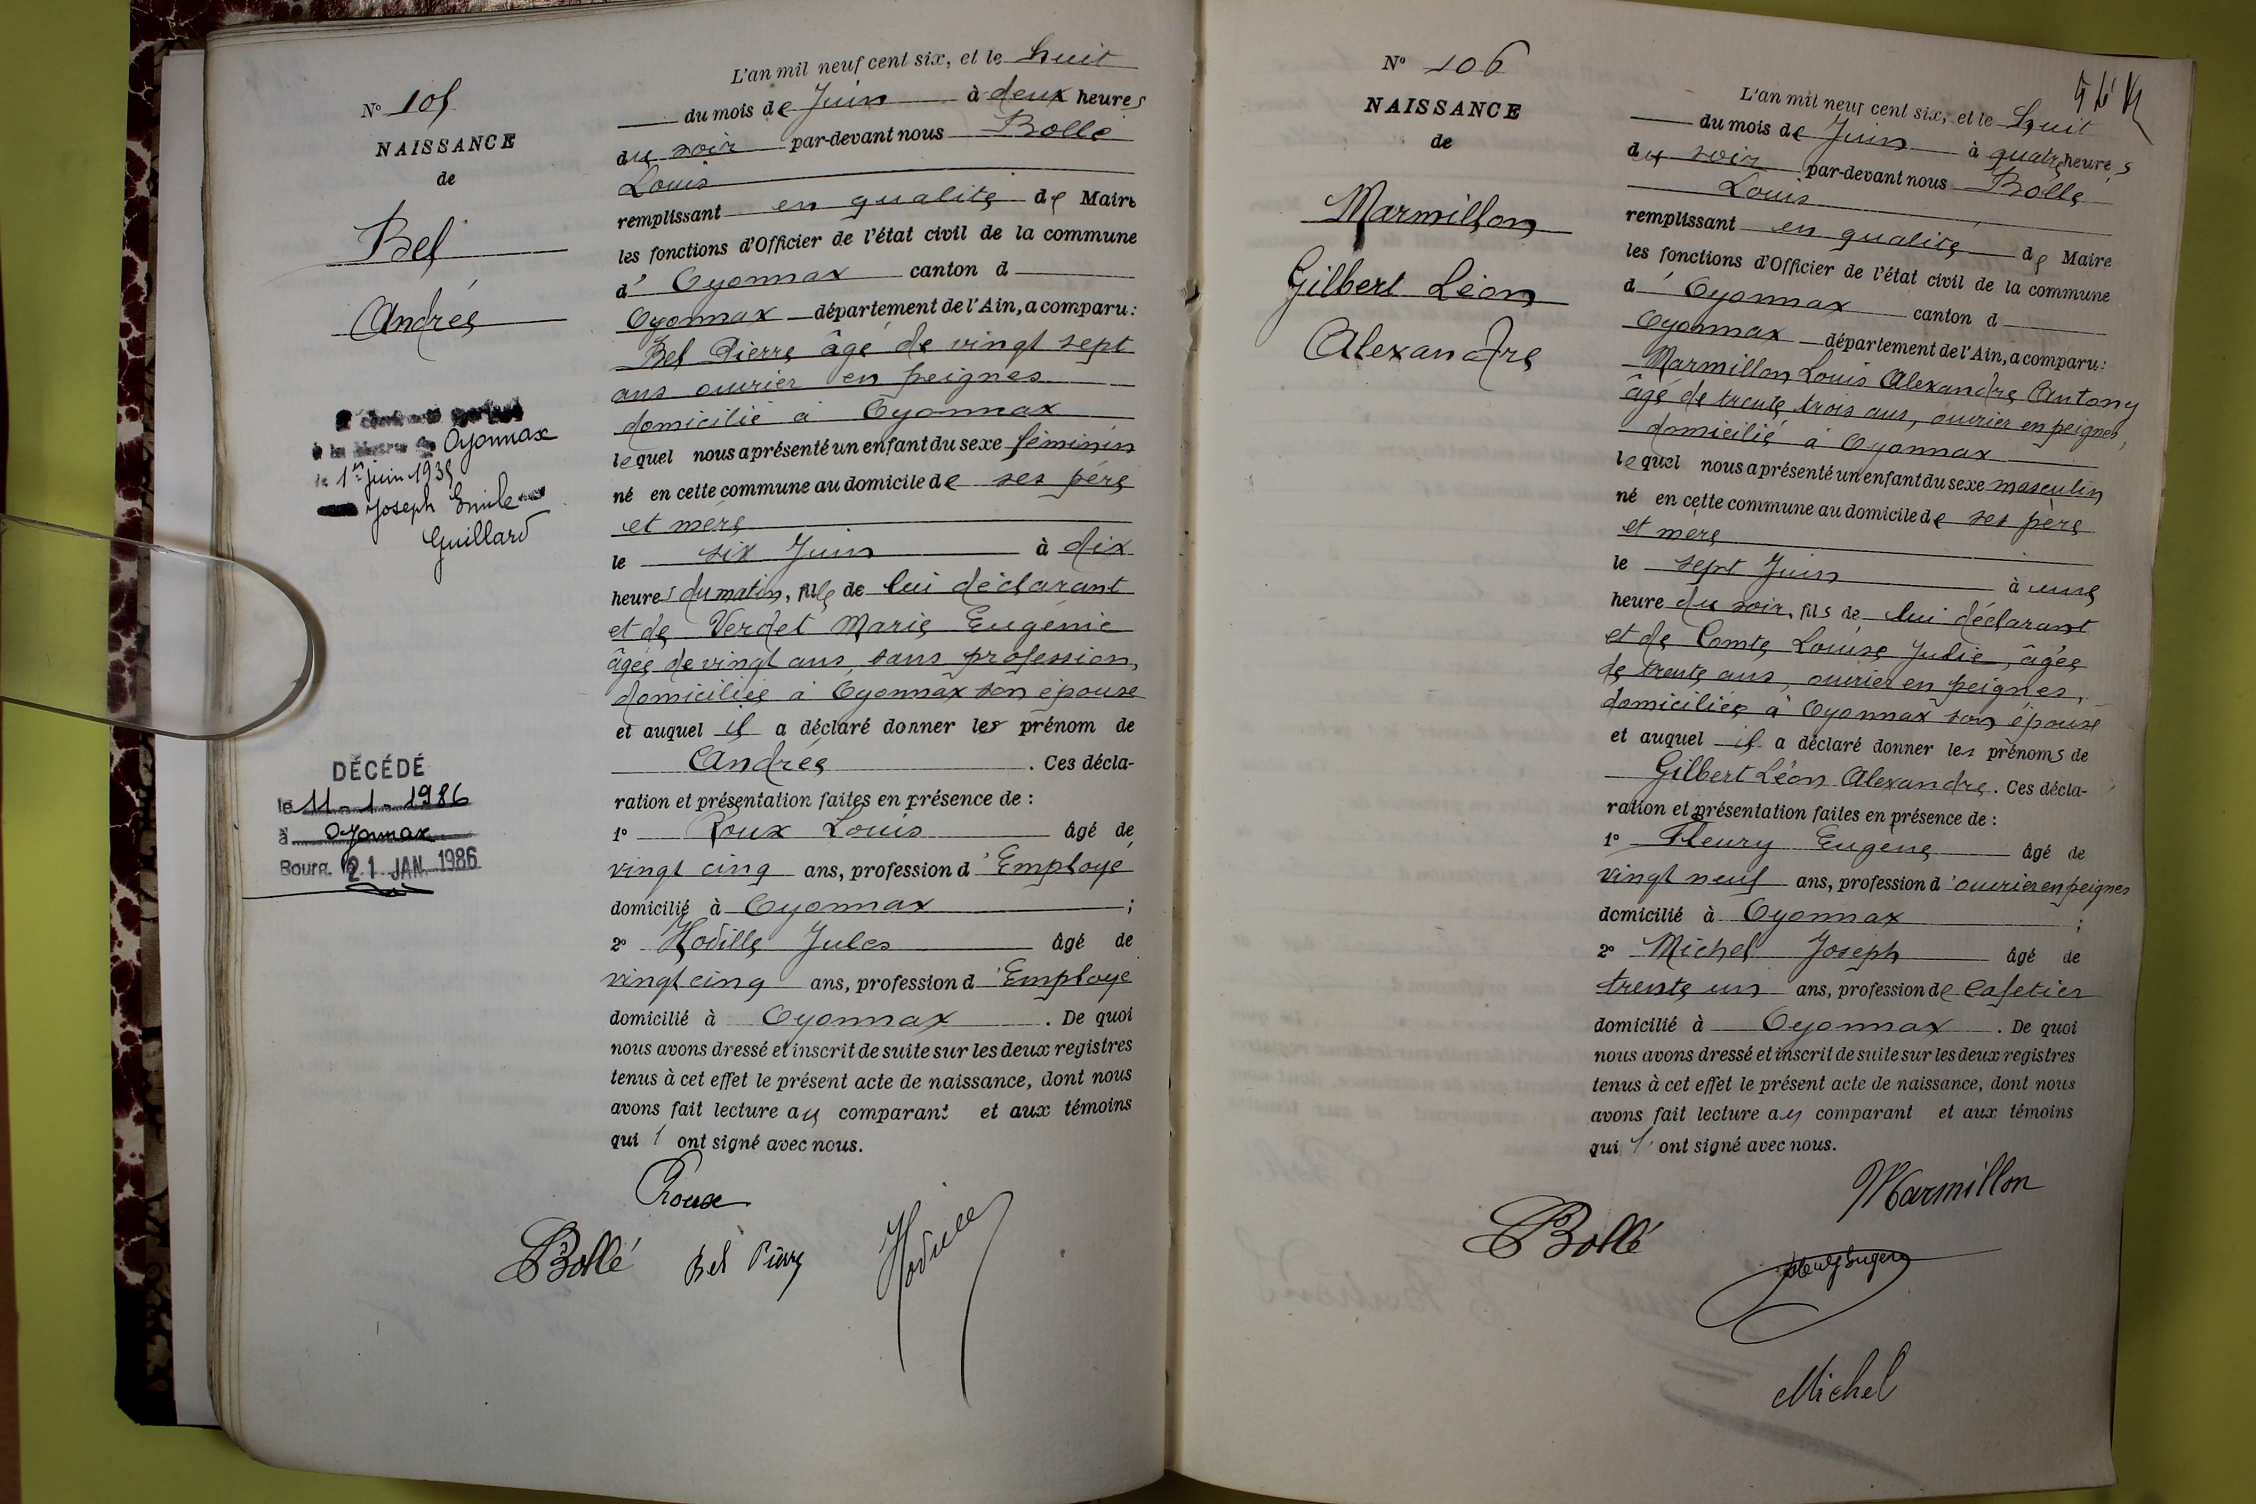 N° 105
NAISSANCE
de
Bel
Andrée
à la Mairie de Oyonnax
le 1er juin 1935
Joseph Emile
Guillard
DÉCÉDÉ
le 11-1-1986
à Oyonnax
Bourg, 21 JAN. 1986
L'an mil neuf cent six, et le huit
du mois de Juin à deux heures
du soir par-devant nous Bollé
Louis
remplissant en qualité de Maire
les fonctions d'Officier de l'état civil de la commune
d' Oyonnax canton d
Oyonnax département de l'Ain, a comparu:
Bel Pierre âgé de vingt sept
ans ouvrier en peignes
domicilié à Oyonnax
lequel nous a présenté un enfant du sexe féminin
né en cette commune au domicile de ses père
et mère
le six Juin à dix
heures du matin, fille de lui déclarant
et de Verdet Marie Eugénie
âgée de vingt ans, sans profession,
domiciliée à Oyonnax son épouse
et auquel il a déclaré donner les prénom de
Andrée . Ces décla-
ration et présentation faites en présence de :
1° Roux Louis âgé de
vingt cinq ans, profession d'Employé
domicilié à Oyonnax ;
2° Hodille Jules âgé de
vingt cinq ans, profession d'Employé
domicilié à Oyonnax . De quoi
nous avons dressé et inscrit de suite sur les deux registres
tenus à cet effet le présent acte de naissance, dont nous
avons fait lecture au comparant et aux témoins
qui l'ont signé avec nous.
Roux
Bollé Bel Pierre Hodille
N° 106
NAISSANCE
de
Marmillon
Gilbert Léon
Alexandre
L'an mil neuf cent six, et le huit
du mois de Juin à quatre heures
du soir par-devant nous Bollé
Louis
remplissant en qualité de Maire
les fonctions d'Officier de l'état civil de la commune
d' Oyonnax canton d
Oyonnax département de l'Ain, a comparu:
Marmillon Louis Alexandre Antony
âgé de trente trois ans, ouvrier en peignes,
domicilié à Oyonnax
lequel nous a présenté un enfant du sexe masculin
né en cette commune au domicile de ses père
et mère
le sept Juin à une
heure du soir, fils de lui déclarant
et de Comte Louise Judie, âgée
de trente ans, ouvrier en peignes,
domiciliée à Oyonnax son épouse
et auquel il a déclaré donner les prénoms de
Gilbert Léon Alexandre. Ces décla-
ration et présentation faites en présence de :
1° Fleury Eugène âgé de
vingt neuf ans, profession d'ouvrier en peignes
domicilié à Oyonnax ;
2° Michel Joseph âgé de
trente un ans, profession de Cafetier
domicilié à Oyonnax . De quoi
nous avons dressé et inscrit de suite sur les deux registres
tenus à cet effet le présent acte de naissance, dont nous
avons fait lecture au comparant et aux témoins
qui l'ont signé avec nous.
Marmillon
Bollé
Fleury Eugène
Michel